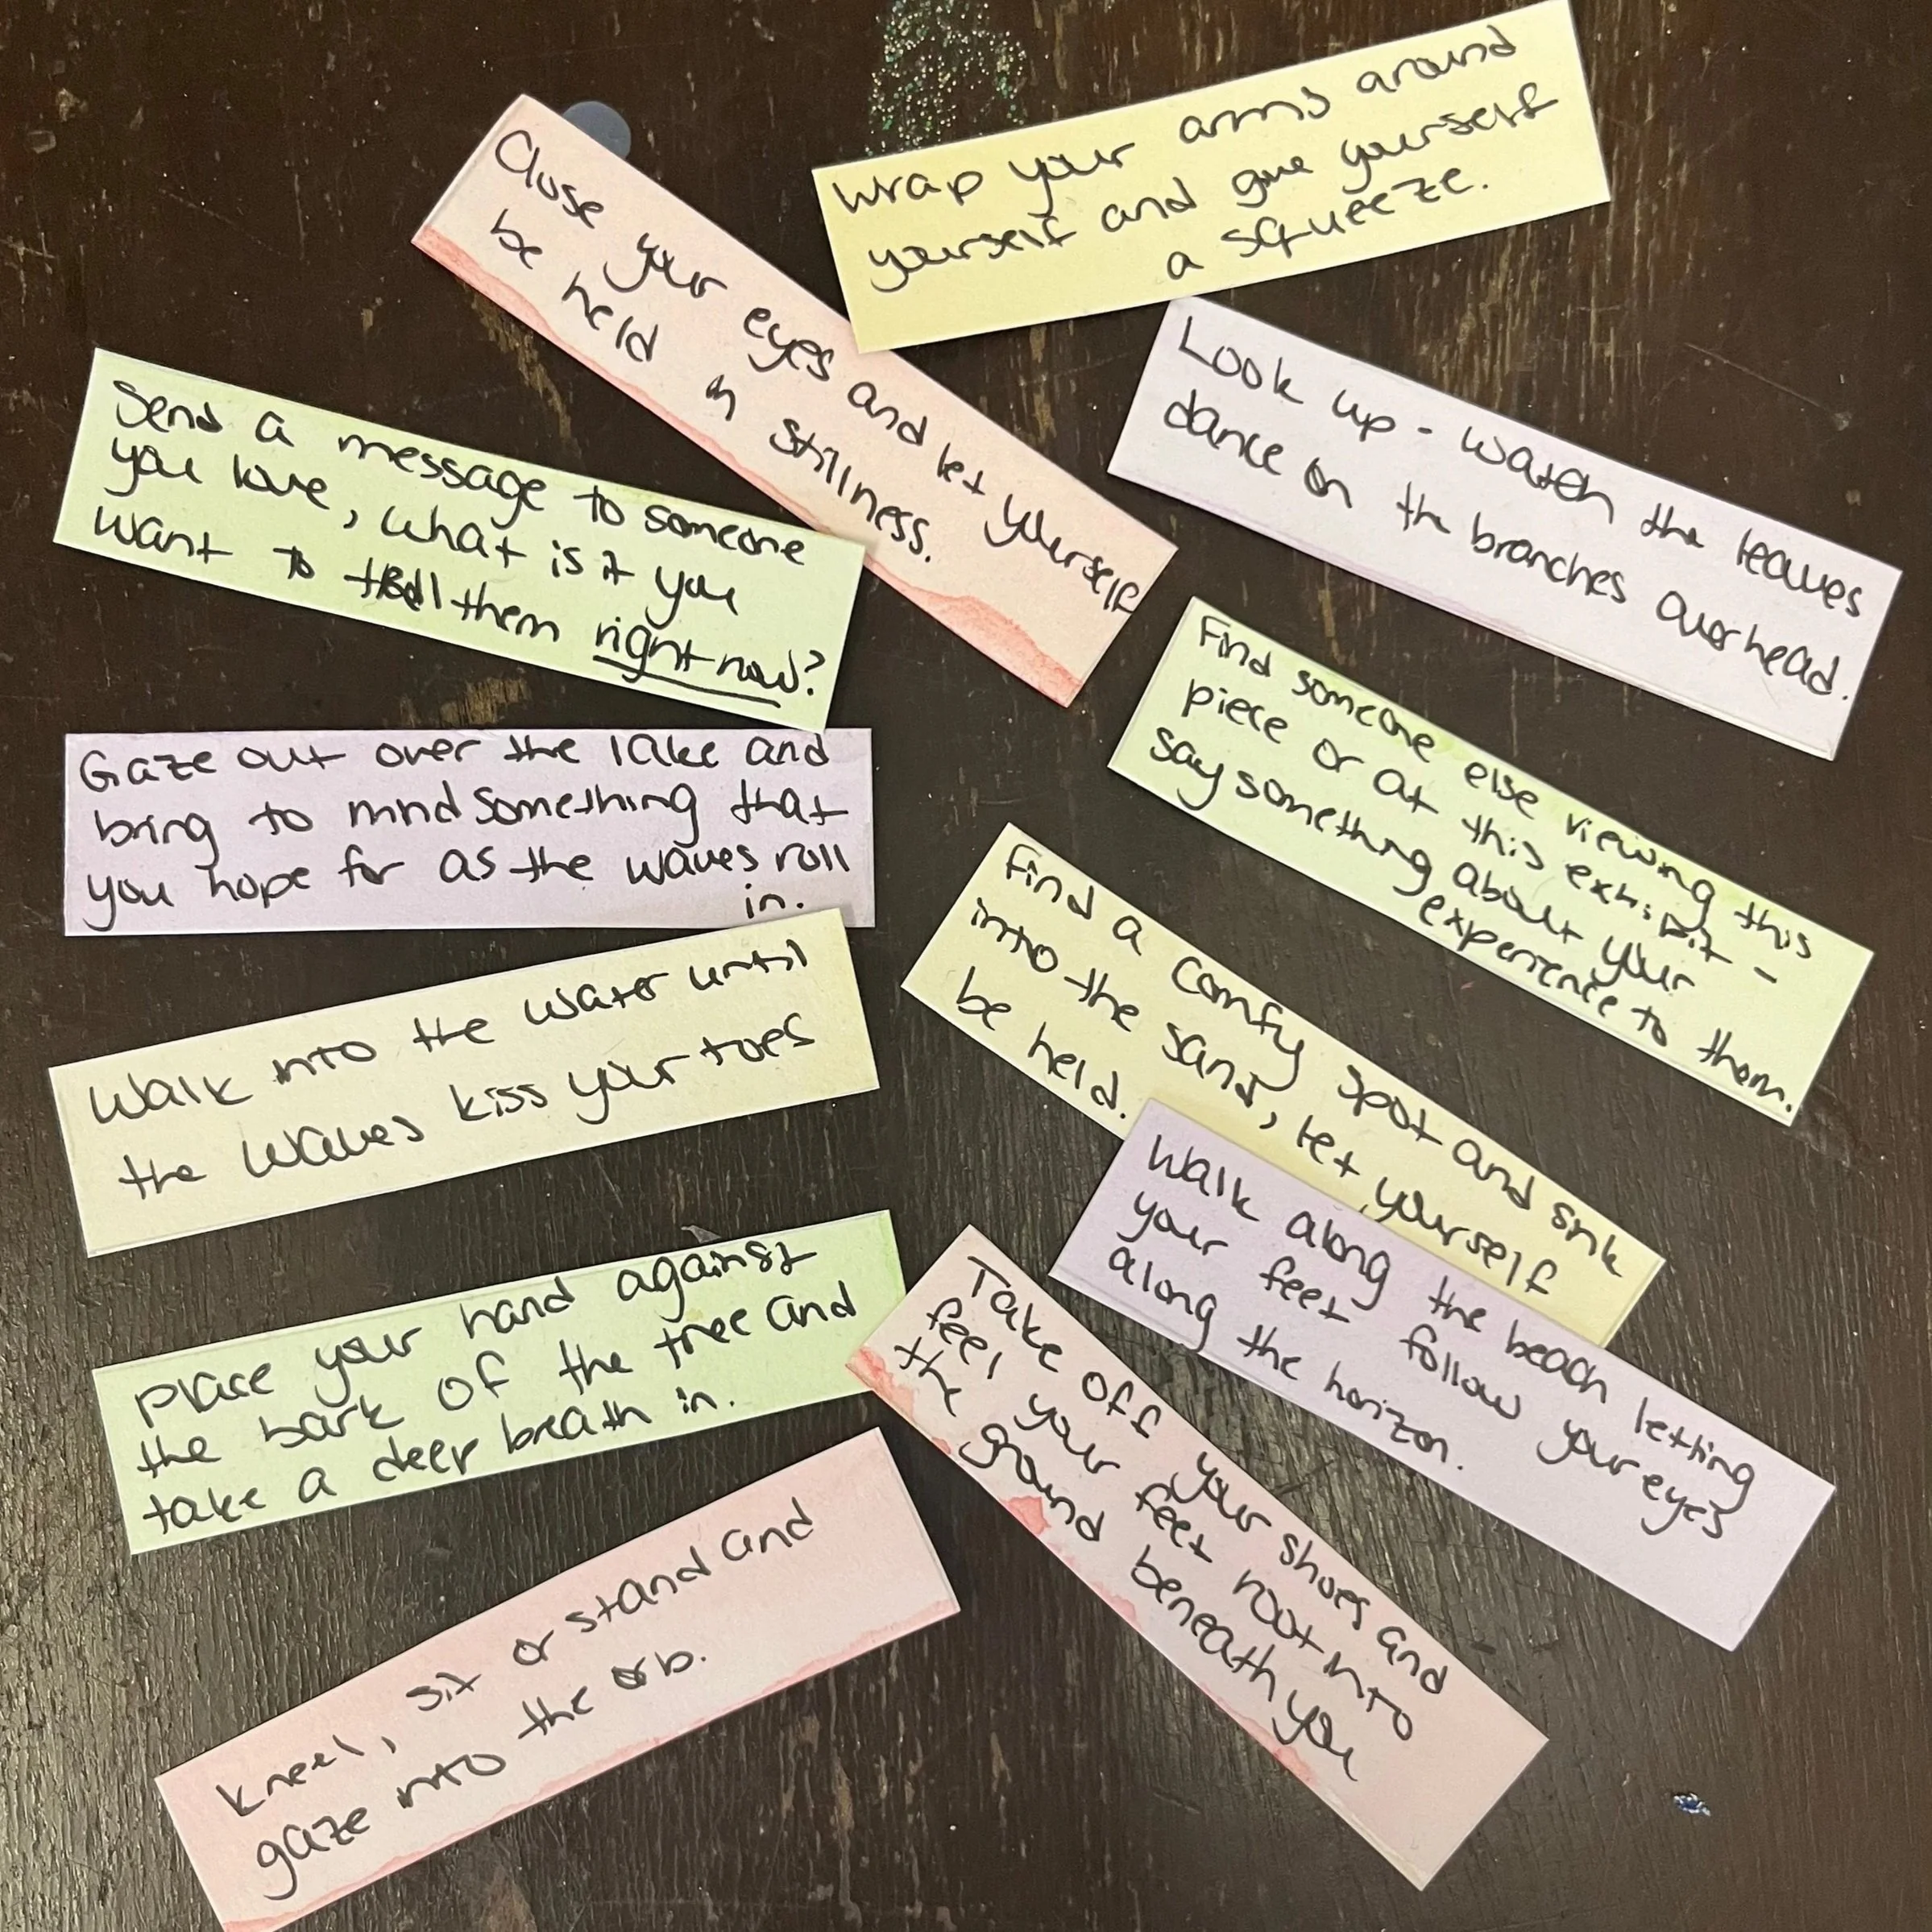 Wrap your arms around
yourself and give yourself
a squeeze.
Close your eyes and let yourself
be held in stillness.
Look up - watch the leaves
dance on the branches overhead.
Send a message to someone
you love, what is it you
want to tell them right now?
Find someone else viewing this
piece or at this exhibit -
say something about your
experience to them.
Gaze out over the lake and
bring to mind something that
you hope for as the waves roll
in.
Find a comfy spot and sink
into the sand, let yourself
be held.
Walk into the water until
the waves kiss your toes
Walk along the beach letting
your feet follow your eyes
along the horizon.
Place your hand against
the bark of the tree and
take a deep breath in.
Take off your shoes and
feel your feet root into
the ground beneath you
Kneel, sit or stand and
gaze into the orb.